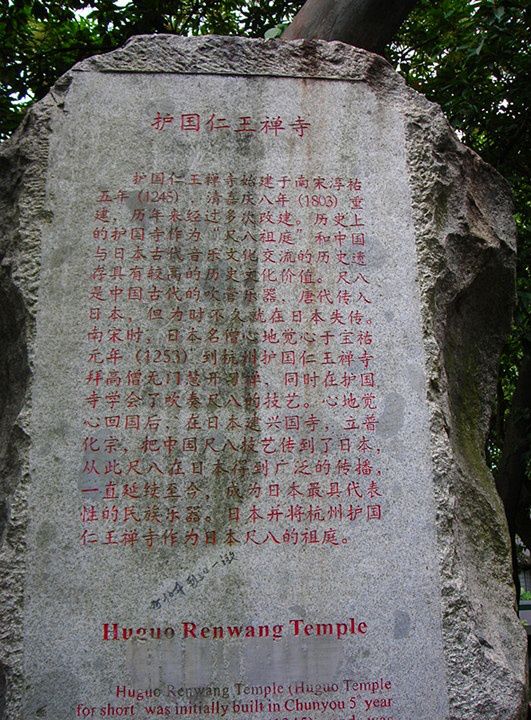 护国仁王禅寺
护国仁王禅寺始建于南宋淳祐
五年（1245），清嘉庆八年（1803）重
建，历年来经过多次改建。历史上
的护国寺作为“尺八祖庭”和中国
与日本古代音乐文化交流的历史遗
存具有较高的历史文化价值。尺八
是中国古代的吹管乐器，唐代传入
日本，但为时不久就在日本失传。
南宋时，日本名僧心地觉心于宝祐
元年（1253）到杭州护国仁王禅寺
拜高僧无门慧开习禅，同时在护国
寺学会了吹奏尺八的技艺。心地觉
心回国后，在日本建兴国寺，立普
化宗，把中国尺八技艺传到了日本，
从此尺八在日本得到广泛的传播，
一直延续至今，成为日本最具代表
性的民族乐器。日本并将杭州护国
仁王禅寺作为日本尺八的祖庭。
Huguo Renwang Temple
Huguo Renwang Temple (Huguo Temple
for short was initially built in Chunyou 5 year